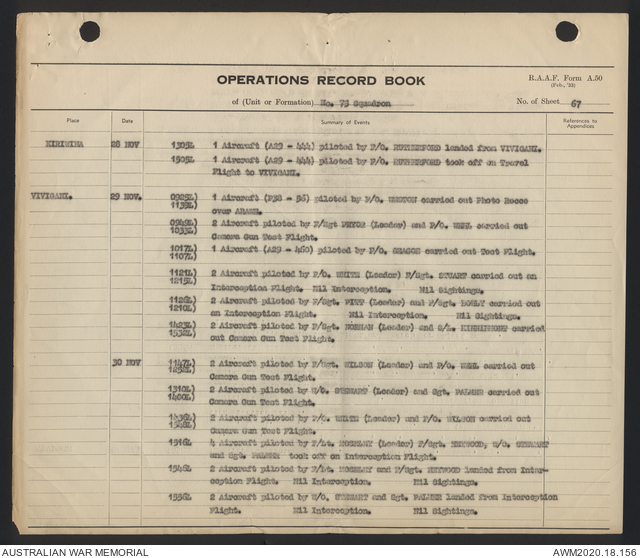 OPERATIONS RECORD BOOK
R.A.A.F. Form A.50
(Feb., '33)
of (Unit or Formation) No. 75 Squadron
No. of Sheet 67
Place Date Summary of Events References to Appendices
KIRIWINA 28 NOV 1305L 1 Aircraft (A29 - 444) piloted by F/O. RUTHERFORD landed from VIVIGANI.
1505L 1 Aircraft (A29 - 444) piloted by F/O. RUTHERFORD took off on Travel
Flight to VIVIGANI.
VIVIGANI. 29 NOV. 0925L) 1 Aircraft (P38 - 56) piloted by F/O. carried out Photo Recco
1135L) over
0945L) 2 Aircraft piloted by F/Sgt PRYCE (Leader) and F/O. carried out
1035L) Camera Gun Test Flight.
1017L) 1 Aircraft (A29 - 460) piloted by F/O. carried out Test Flight.
1107L)
1121L) 2 Aircraft piloted by F/O. WHITE (Leader) F/Sgt. STUART carried out an
1215L) Interception Flight. Nil Interception. Nil Sightings.
1126L) 2 Aircraft piloted by F/Sgt. PITT (Leader) and F/Sgt. carried out
1210L) an Interception Flight. Nil Interception. Nil Sightings.
1423L) 2 Aircraft piloted by F/Sgt. NORMAN (Leader) and carried
out Camera Gun Test Flight.
30 NOV 1147L) 2 Aircraft piloted by F/Sgt. WILSON (Leader) and F/O. carried out
Camera Gun Test Flight.
1310L) 2 Aircraft piloted by W/O. STEWART (Leader) and Sgt. PALMER carried out
1400L) Camera Gun Test Flight.
2 Aircraft piloted by F/O. WHITE (Leader) and F/O. WILSON carried out
Camera Gun Test Flight.
1516L 4 Aircraft piloted by F/Lt. (Leader) F/Sgt. HEYWOOD, W/O. STEWART
and Sgt. PALMER took off on Interception Flight.
1546L 2 Aircraft piloted by F/Lt. and F/Sgt. HEYWOOD landed from Inter-
ception Flight. Nil Interception. Nil Sightings.
1556L 2 Aircraft piloted by W/O. STEWART and Sgt. PALMER landed from Interception
Flight. Nil Interception. Nil Sightings.
AUSTRALIAN WAR MEMORIAL AWM2020.18.156